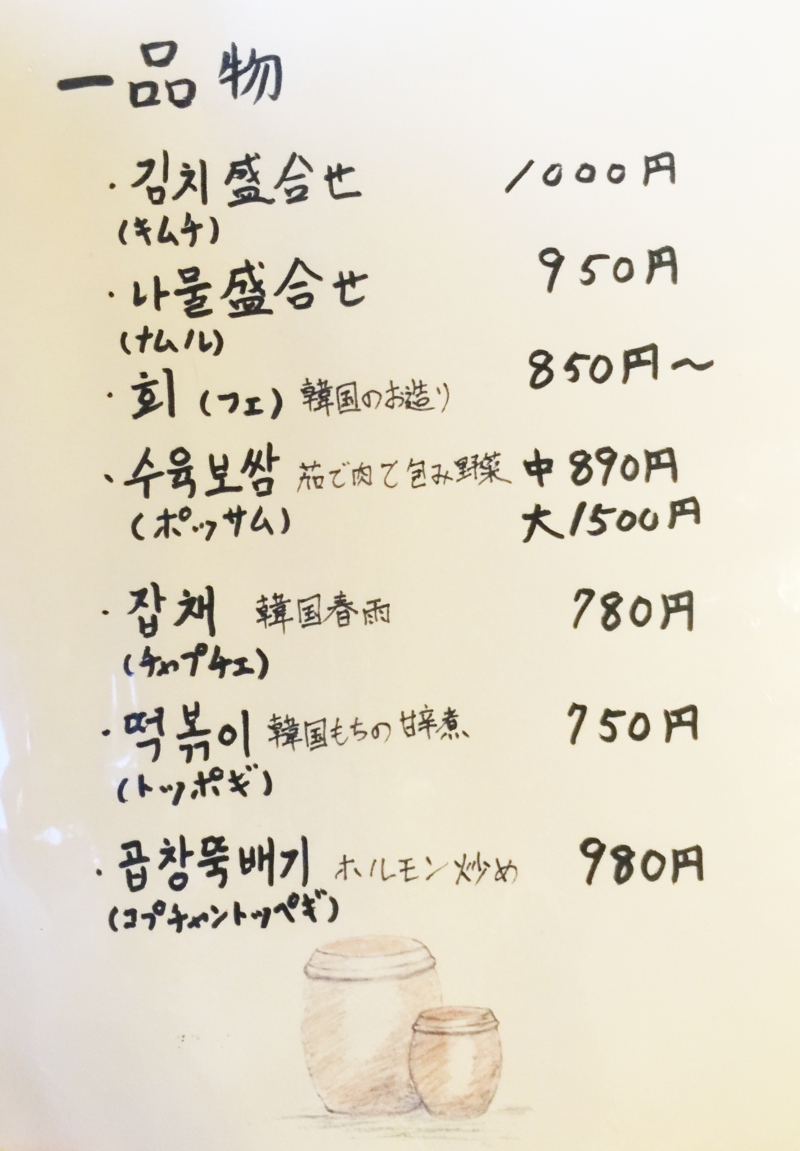 一品物
・김치盛合せ 1000円
(キムチ)
・나물盛合せ 950円
(ナムル)
・회(フェ) 韓国のお造り 850円～
・수육보쌈 茹で肉で包み野菜 中890円
(ポッサム) 大1500円
・잡채 韓国春雨 780円
(チャプチェ)
・떡볶이 韓国もちの甘辛煮 750円
(トッポギ)
・곱창뚝배기 ホルモン炒め 980円
(コプチャントッペギ)